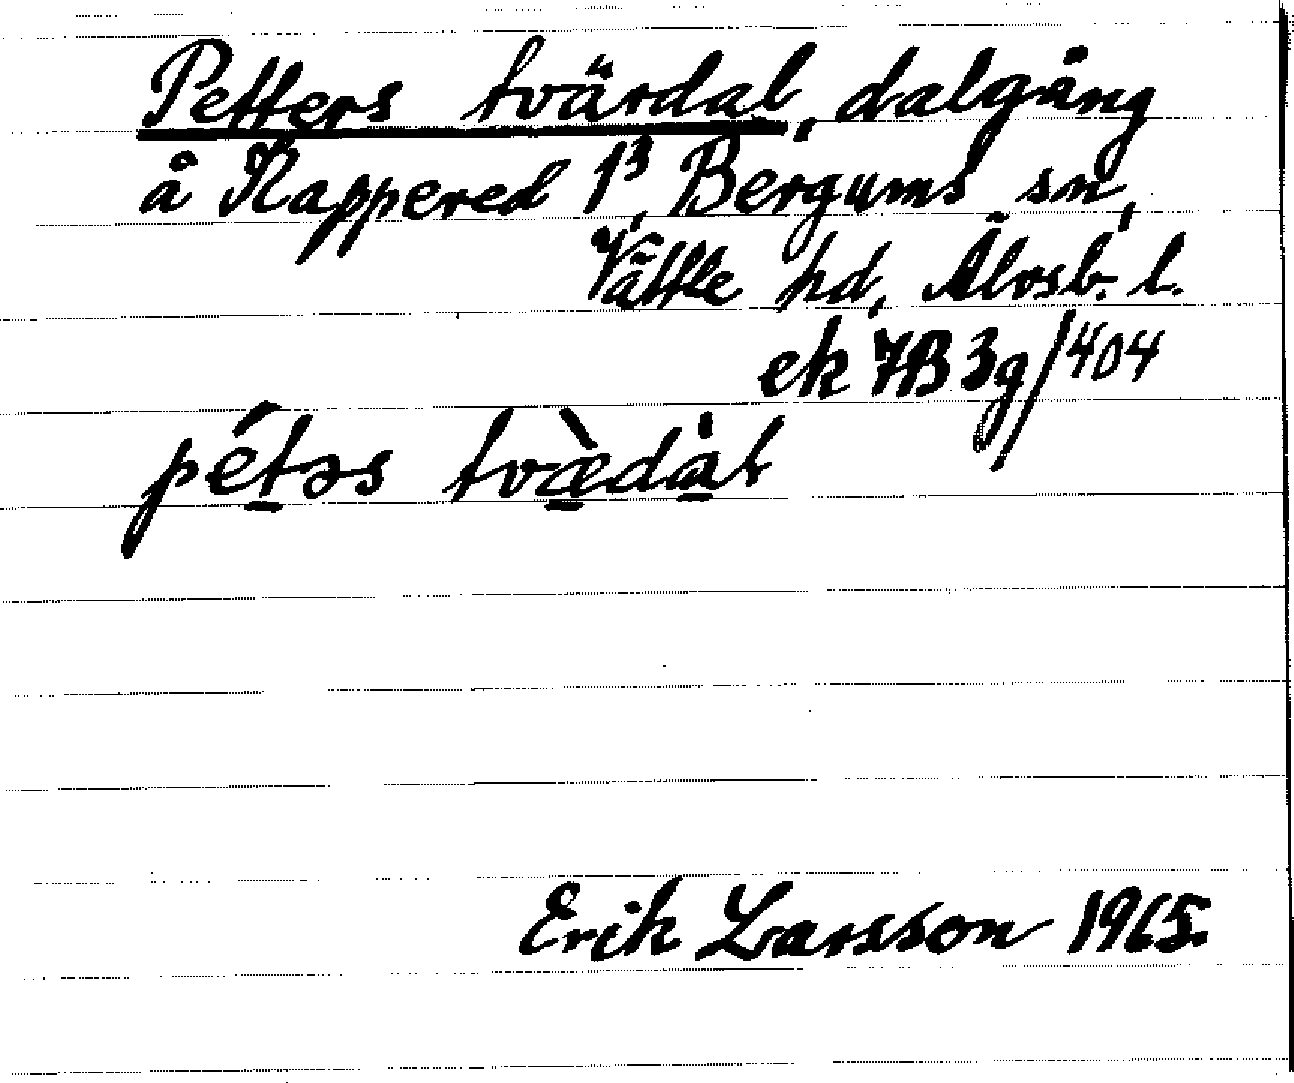 Petters tvärdal, dalgång
å Kappered 1³, Bergums sn,
Vättle hd, Älvsb. l.
ek 7B 3g/404
pétəs tvæ̀dȧl
Erik Larsson 1965.